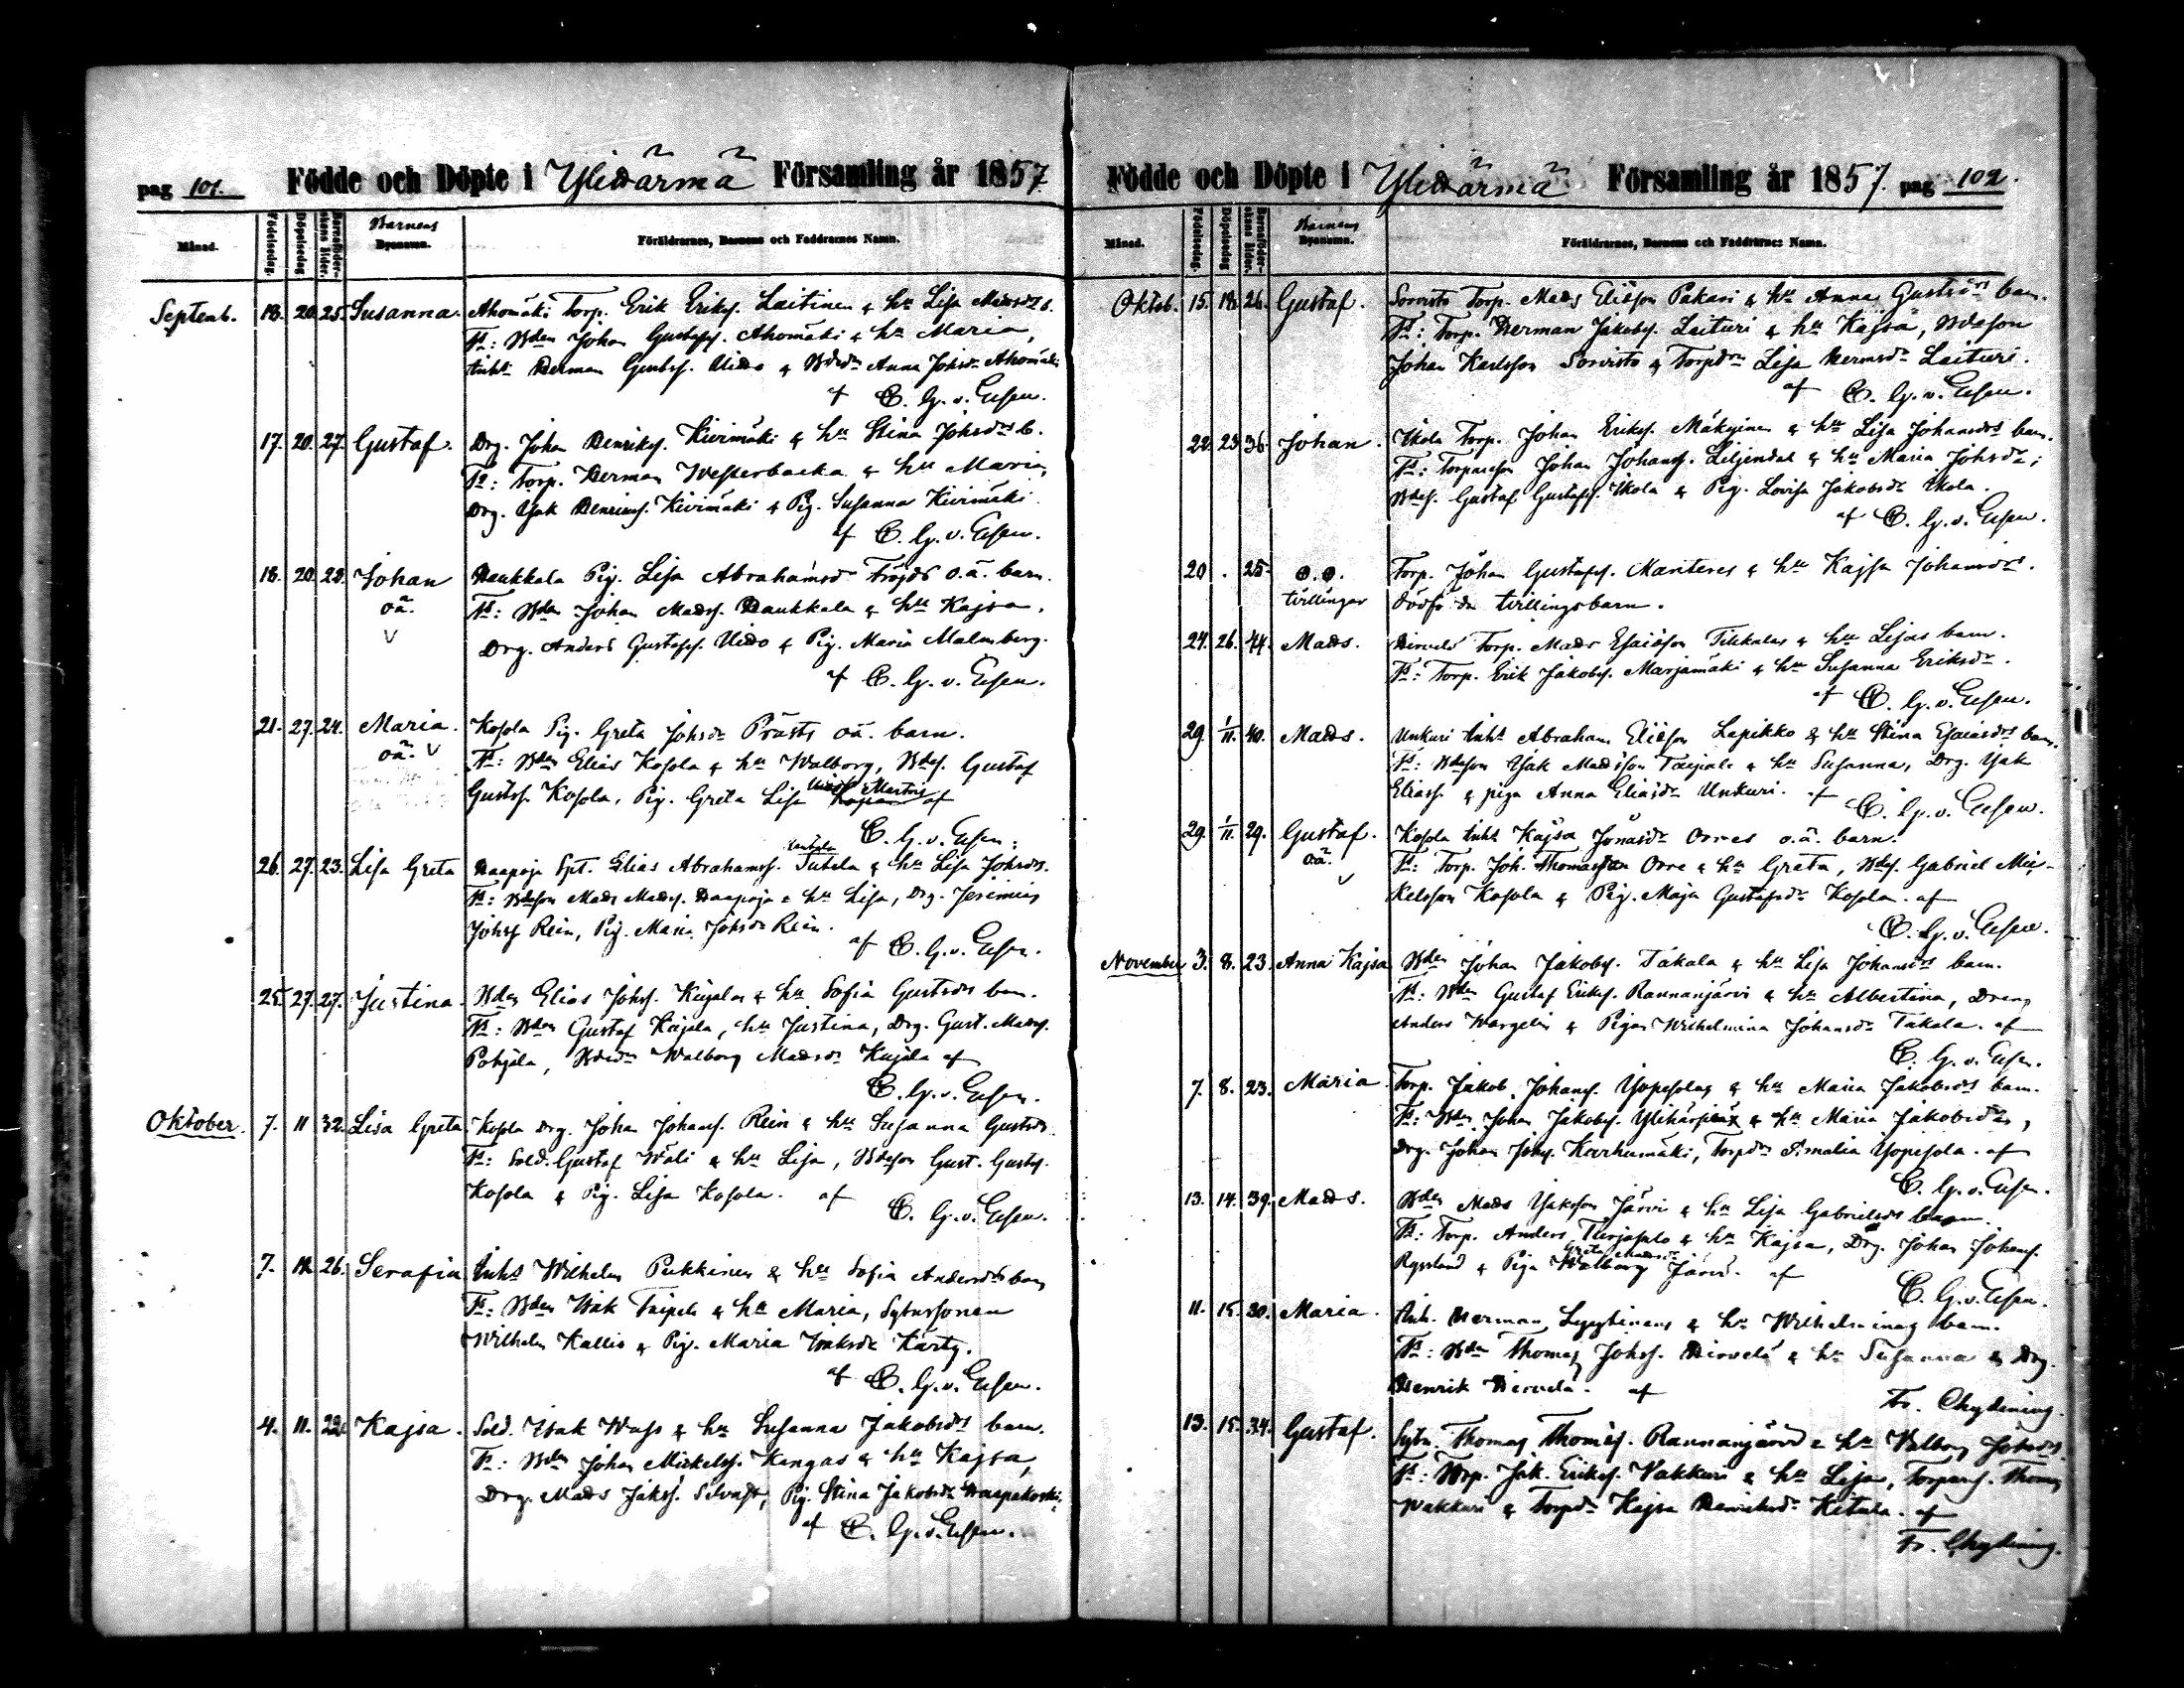 pag 101. Födde och Döpte i Ylihärmä Församling år 1857
Månad. Födelsedag. Döpelsedag. Barnaföderskans ålder. Barnens Byanamn. Föräldrarnes, Barnens och Faddrarnes Namn.
Septemb. 18. 20. 25. Susanna. Ahomäki Torp. Erik Eriks. Laitinen & hu Lisa Madsdrs b.
Ft: Bden Johan Gustafs. Ahomäki & hu Maria,
Inhs Herman Gustafs. & Bdrdr Anna Johsdr Ahomäki
af C. G. v. Essen.
17. 20. 27. Gustaf. Drg. Johan Henriks. Kivimäki & hu Stina Johsdrs b.
Ft: Torp. Herman Westerbacka & hu Maria,
Drg. Isak Henriks. Kivimäki & Pig. Susanna Kivimäki
af C. G. v. Essen.
18. 20. 28. Johan Haukkala Pig. Lisa Abrahamsdr Fröjds o.ä. barn.
oä. Ft: Bden Johan Madss. Haukkala & hu Kajsa,
v Drg. Anders Gustafss. & Pig. Maria Malmberg.
af C. G. v. Essen.
21. 27. 24. Maria. Kosola Pig. Greta Johsdr Prästs oä. barn.
oä. v Ft: Bden Elias Kosola & hu Walborg, Bdes. Gustaf
Gustfs. Kosola, Pig. Greta Lisa af
C. G. v. Essen.
26. 27. 23. Lisa Greta Haapoja Spt. Elias Abrahamss. & hu Lisa Johsdrs.
Ft: Bdeson Mads Madss. Haapoja & hu Lisa, Drg. Jeremias
Johss Rein, Pig. Maria Johsdr Rein.
af C. G. v. Essen.
25. 27. 27. Justina. Bden Elias Johss. Kujala & hu Sofia Gustsdrs barn.
Ft: Bden Gustaf Kujala, hu Justina, Drg. Gust. Madss.
Pohjola, Bdrdr Walborg Madsdr Kujala af
C. G. v. Essen.
Oktober. 7. 11 32. Lisa Greta Kosola Drg. Johan Johanss. Rein & hu Susanna Gustsdrs.
Ft: Sold. Gustaf Wäli & hu Lisa, Bdeson Gust. Gustfs.
Kosola & Pig. Lisa Kosola. af
C. G. v. Essen.
7. 11. 26. Serafia Inhs Wilhelm Pukkinen & hu Sofia Andersdrs barn
Ft: Bden Isak Taipale & hu Maria, Sytnssonen
Wilhelm Kallio & Pig. Maria Isaksdr Kärty.
af C. G. v. Essen.
4. 11. Kajsa. Sold. Isak Wass & hu Susanna Jakobsdrs barn.
Ft: Bden Johan Mickelss. Kangas & hu Kajsa,
Drg. Mads Jakss. Silvast, Pig. Stina Jakobsdr Haapakoski,
af C. G. v. Essen.
Födde och Döpte i Ylihärmä Församling år 1857. pag 102.
Månad. Födelsedag. Döpelsedag. Barnaföderskans ålder. Barnens Byanamn. Föräldrarnes, Barnens och Faddrarnes Namn.
Oktob. 15. 18. 26. Gustaf. Sorvisto Torp. Mads Eliesson Pakari & hu Anna Gustsdrs barn.
Ft: Torp. Herman Jakobs. Laituri & hu Kajsa, Bdeson
Johan Karlsson Sorvisto & Torpdr Lisa Hermsdr Laituri.
af C. G. v. Essen.
22. 23. 36. Johan. Ekola Torp. Johan Eriks. Mäkynen & hu Lisa Johansdrs barn.
Ft: Torpareson Johan Johanss. Liljendal & hu Maria Johsdr,
Bdes. Gustaf Gustafs. Ekola & Pig. Lovisa Jakobsdr Ekola.
af C. G. v. Essen.
20 . 25. o.o. Torp. Johan Gustafss. Manteres & hu Kajsa Johansdrs.
tvillingar dödfödda tvillingsbarn.
24. 26. 44. Mads. Hirvelä Torp. Mads Esaiesson Tikkalas & hu Lisas barn.
Ft: Torp. Erik Jakobs. Marjamäki & hu Susanna Eriksdr.
af C. G. v. Essen.
29. 1/11. 40. Mads. Unkuri Inhs Abraham Eliesson Lapikko & hu Stina Esaiasdrs barn.
Ft: Bdeson Isak Madsson Taipale & hu Susanna, Drg. Isak
Eliass. & piga Anna Eliasdr Unkuri. af
C. G. v. Essen.
29. 1/11. 29. Gustaf. Kosola Inhs Kajsa Jonasdr Orres o.ä. barn.
oä. Ft: Torp. Joh. Thomasson Orre & hu Greta, Bdes. Gabriel Mic-
v kelsson Kosola & Pig. Maja Gustafsdr Kosola. af
C. G. v. Essen.
November 3. 8. 23. Anna Kajsa Bden Johan Jakobs. Takala & hu Lisa Johansdrs barn.
Ft: Bden Gustaf Eriks. Rannanjärvi & hu Albertina, Dreng
Anders Wargelin & Pigan Wilhelmina Johansdr Takala. af
C. G. v. Essen.
7. 8. 23. Maria Torp. Jakob Johanss. Yopesolas & hu Maria Jakobsdrs barn.
Ft: Bden Johan Jakobs. & hu Maria Jakobsdr,
Drg. Johan Johs. Karhumäki, Torpdr Amalia Yopesola. af
C. G. v. Essen.
13. 14. 39. Mads. Bden Mads Isaksson Järvi & hu Lisa Gabrielsdrs barn.
Ft: Torp. Anders & hu Kajsa, Drg. Johan Johanss.
Greta Madsdr
Ryssland & Piga Walborg Järvi. af
C. G. v. Essen.
11. 15. 30. Maria. Inh. Herman Lyytinens & hu Wilhelminas barn.
Ft: Bden Thomas Johss. Hirvelä & hu Susanna & Drg.
Henrik Hirvelä. af
Fr. Chydenius.
13. 15. 34. Gustaf. Sytn. Thomas Thomass. Rannanjärvi & hu Walborg Johsdrs.
Ft: Torp. Jak. Eriks. Vakkuri & hu Lisa, Torpares. Thomas
Wakkuri & Torpdr Kajsa Henriksdr Kitula. af
Fr. Chydenius.